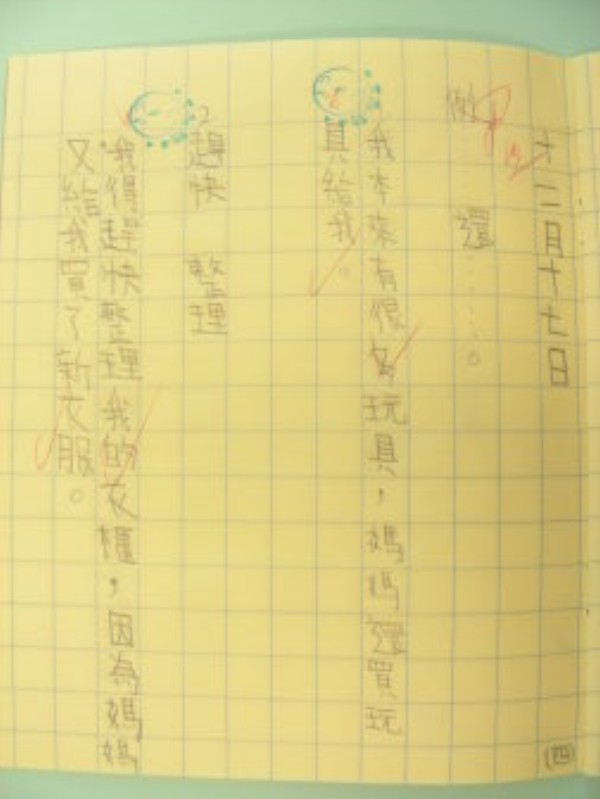 十二月十七日
(四)
還……。
我本來有很多玩具，媽媽還買玩
具給我。
2 趕快 整理
我得趕快整理我的衣櫃，因為媽媽
又給我買了新衣服。